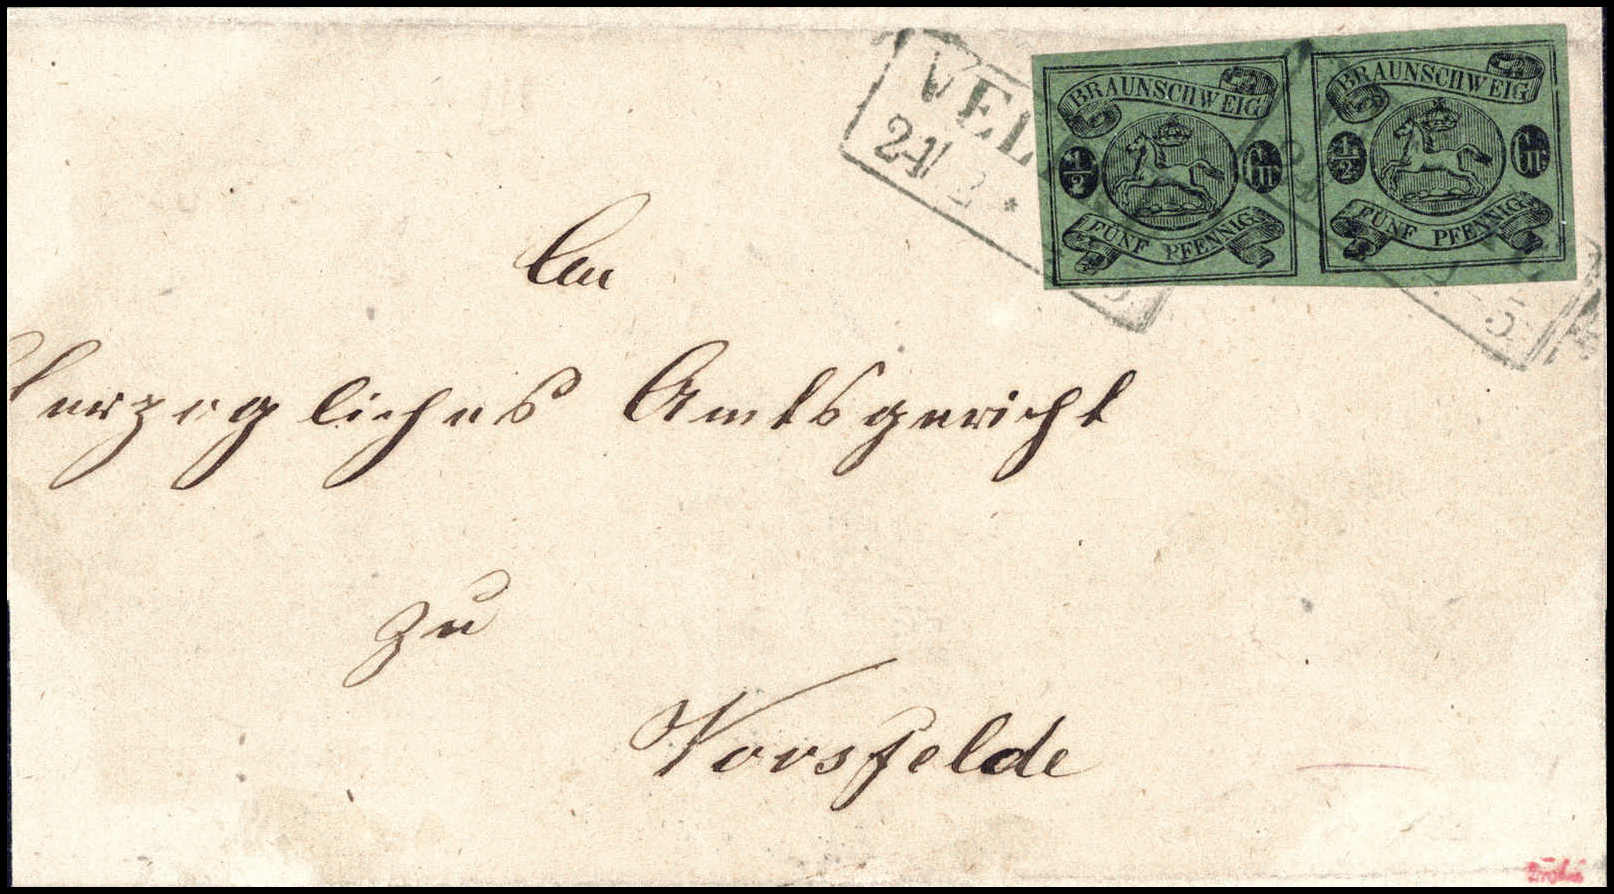 VEL
BRAUNSCHWEIG
1/2 Gr.
FÜNF PFENNIG
BRAUNSCHWEIG
1/2 Gr.
FÜNF PFENNIG
An
Herzogliches Amtsgericht
zu
Vorsfelde